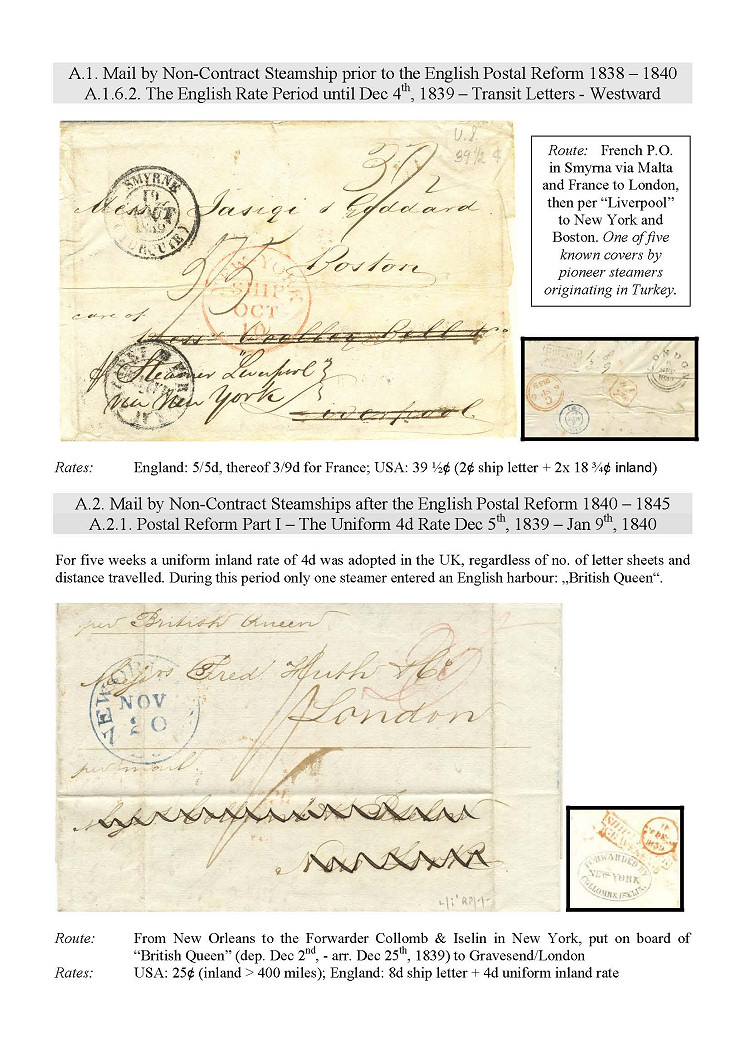 A.1. Mail by Non-Contract Steamship prior to the English Postal Reform 1838 – 1840
A.1.6.2. The English Rate Period until Dec 4th, 1839 – Transit Letters - Westward
U.S
39 ½ ¢
39/2
SMYRNE
19
AOUT
1839
(TURQUIE)
Messrs Iasigi & Goddard
Boston
NEW-YORK
SHIP
OCT
10
care of
Liverpool
pr Steamer "Liverpool"
via New York
Route: French P.O.
in Smyrna via Malta
and France to London,
then per “Liverpool”
to New York and
Boston. One of five
known covers by
pioneer steamers
originating in Turkey.
LONDON
Rates: England: 5/5d, thereof 3/9d for France; USA: 39 ½¢ (2¢ ship letter + 2x 18 ¾¢ inland)
A.2. Mail by Non-Contract Steamships after the English Postal Reform 1840 – 1845
A.2.1. Postal Reform Part I – The Uniform 4d Rate Dec 5th, 1839 – Jan 9th, 1840
For five weeks a uniform inland rate of 4d was adopted in the UK, regardless of no. of letter sheets and
distance travelled. During this period only one steamer entered an English harbour: „British Queen“.
per British Queen
Messrs Fred Huth & Co
London
NEW OR
NOV
20
per mail
New York
SHIP LETTER
GRAVESEND
1839
FORWARDED BY
NEW YORK
COLLOMB & ISELIN
Route: From New Orleans to the Forwarder Collomb & Iselin in New York, put on board of
“British Queen” (dep. Dec 2nd, - arr. Dec 25th, 1839) to Gravesend/London
Rates: USA: 25¢ (inland > 400 miles); England: 8d ship letter + 4d uniform inland rate